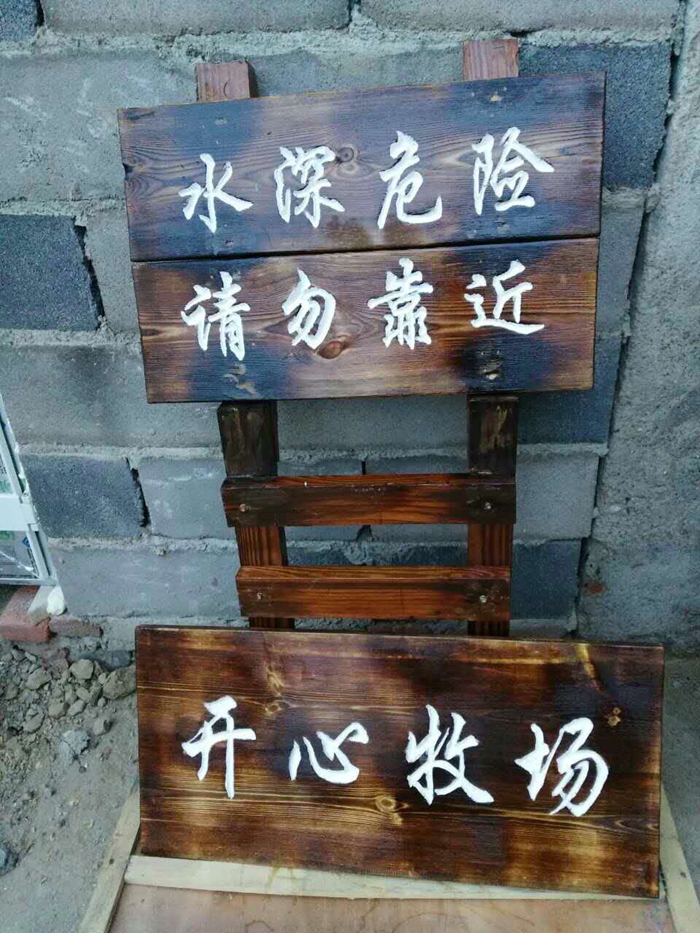 水深危险
请勿靠近
开心牧场